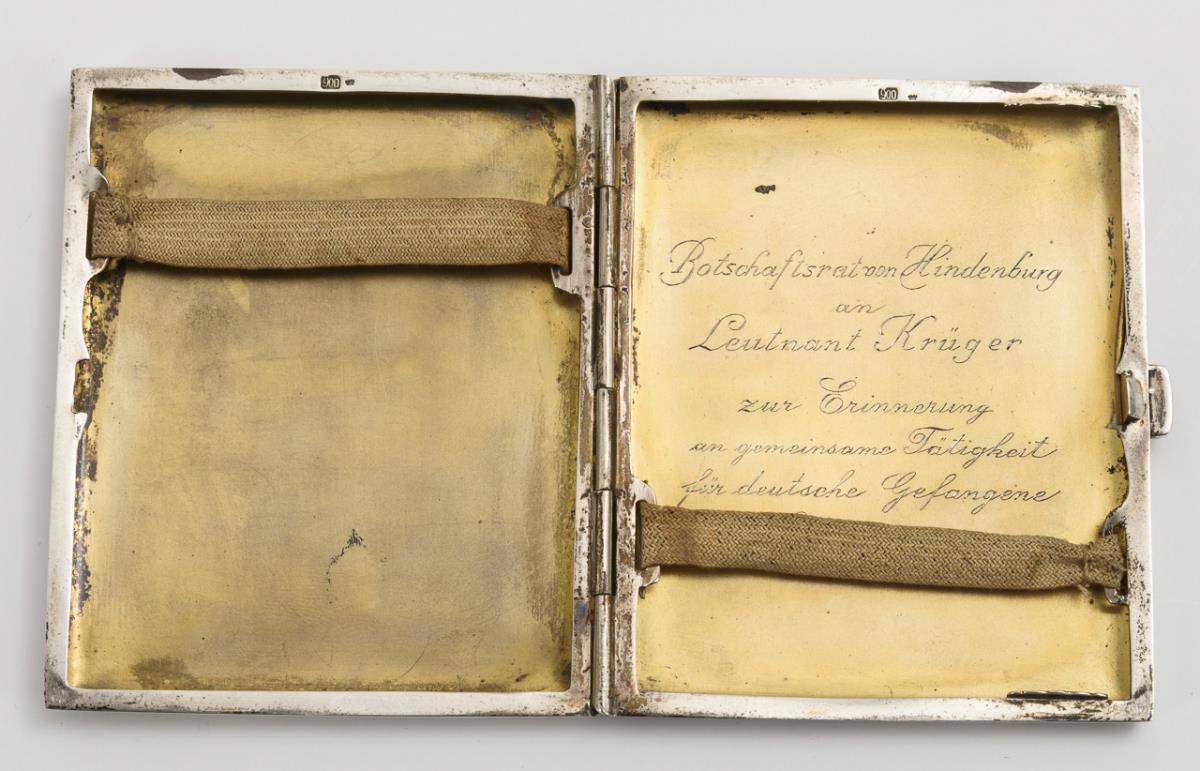 900
900
Botschaftsrat von Hindenburg
an
Leutnant Krüger
zur Erinnerung
an gemeinsame Tätigkeit
für deutsche Gefangene